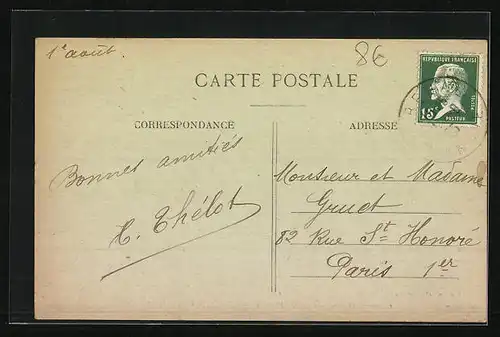 1e août
8€
CARTE POSTALE
RÉPUBLIQUE FRANÇAISE
POSTES
15c
PASTEUR
CORRESPONDANCE
ADRESSE
Bonnes amitiés
H. Thélot
Monsieur et Madame
Gruet
82 Rue St Honoré
Paris 1er